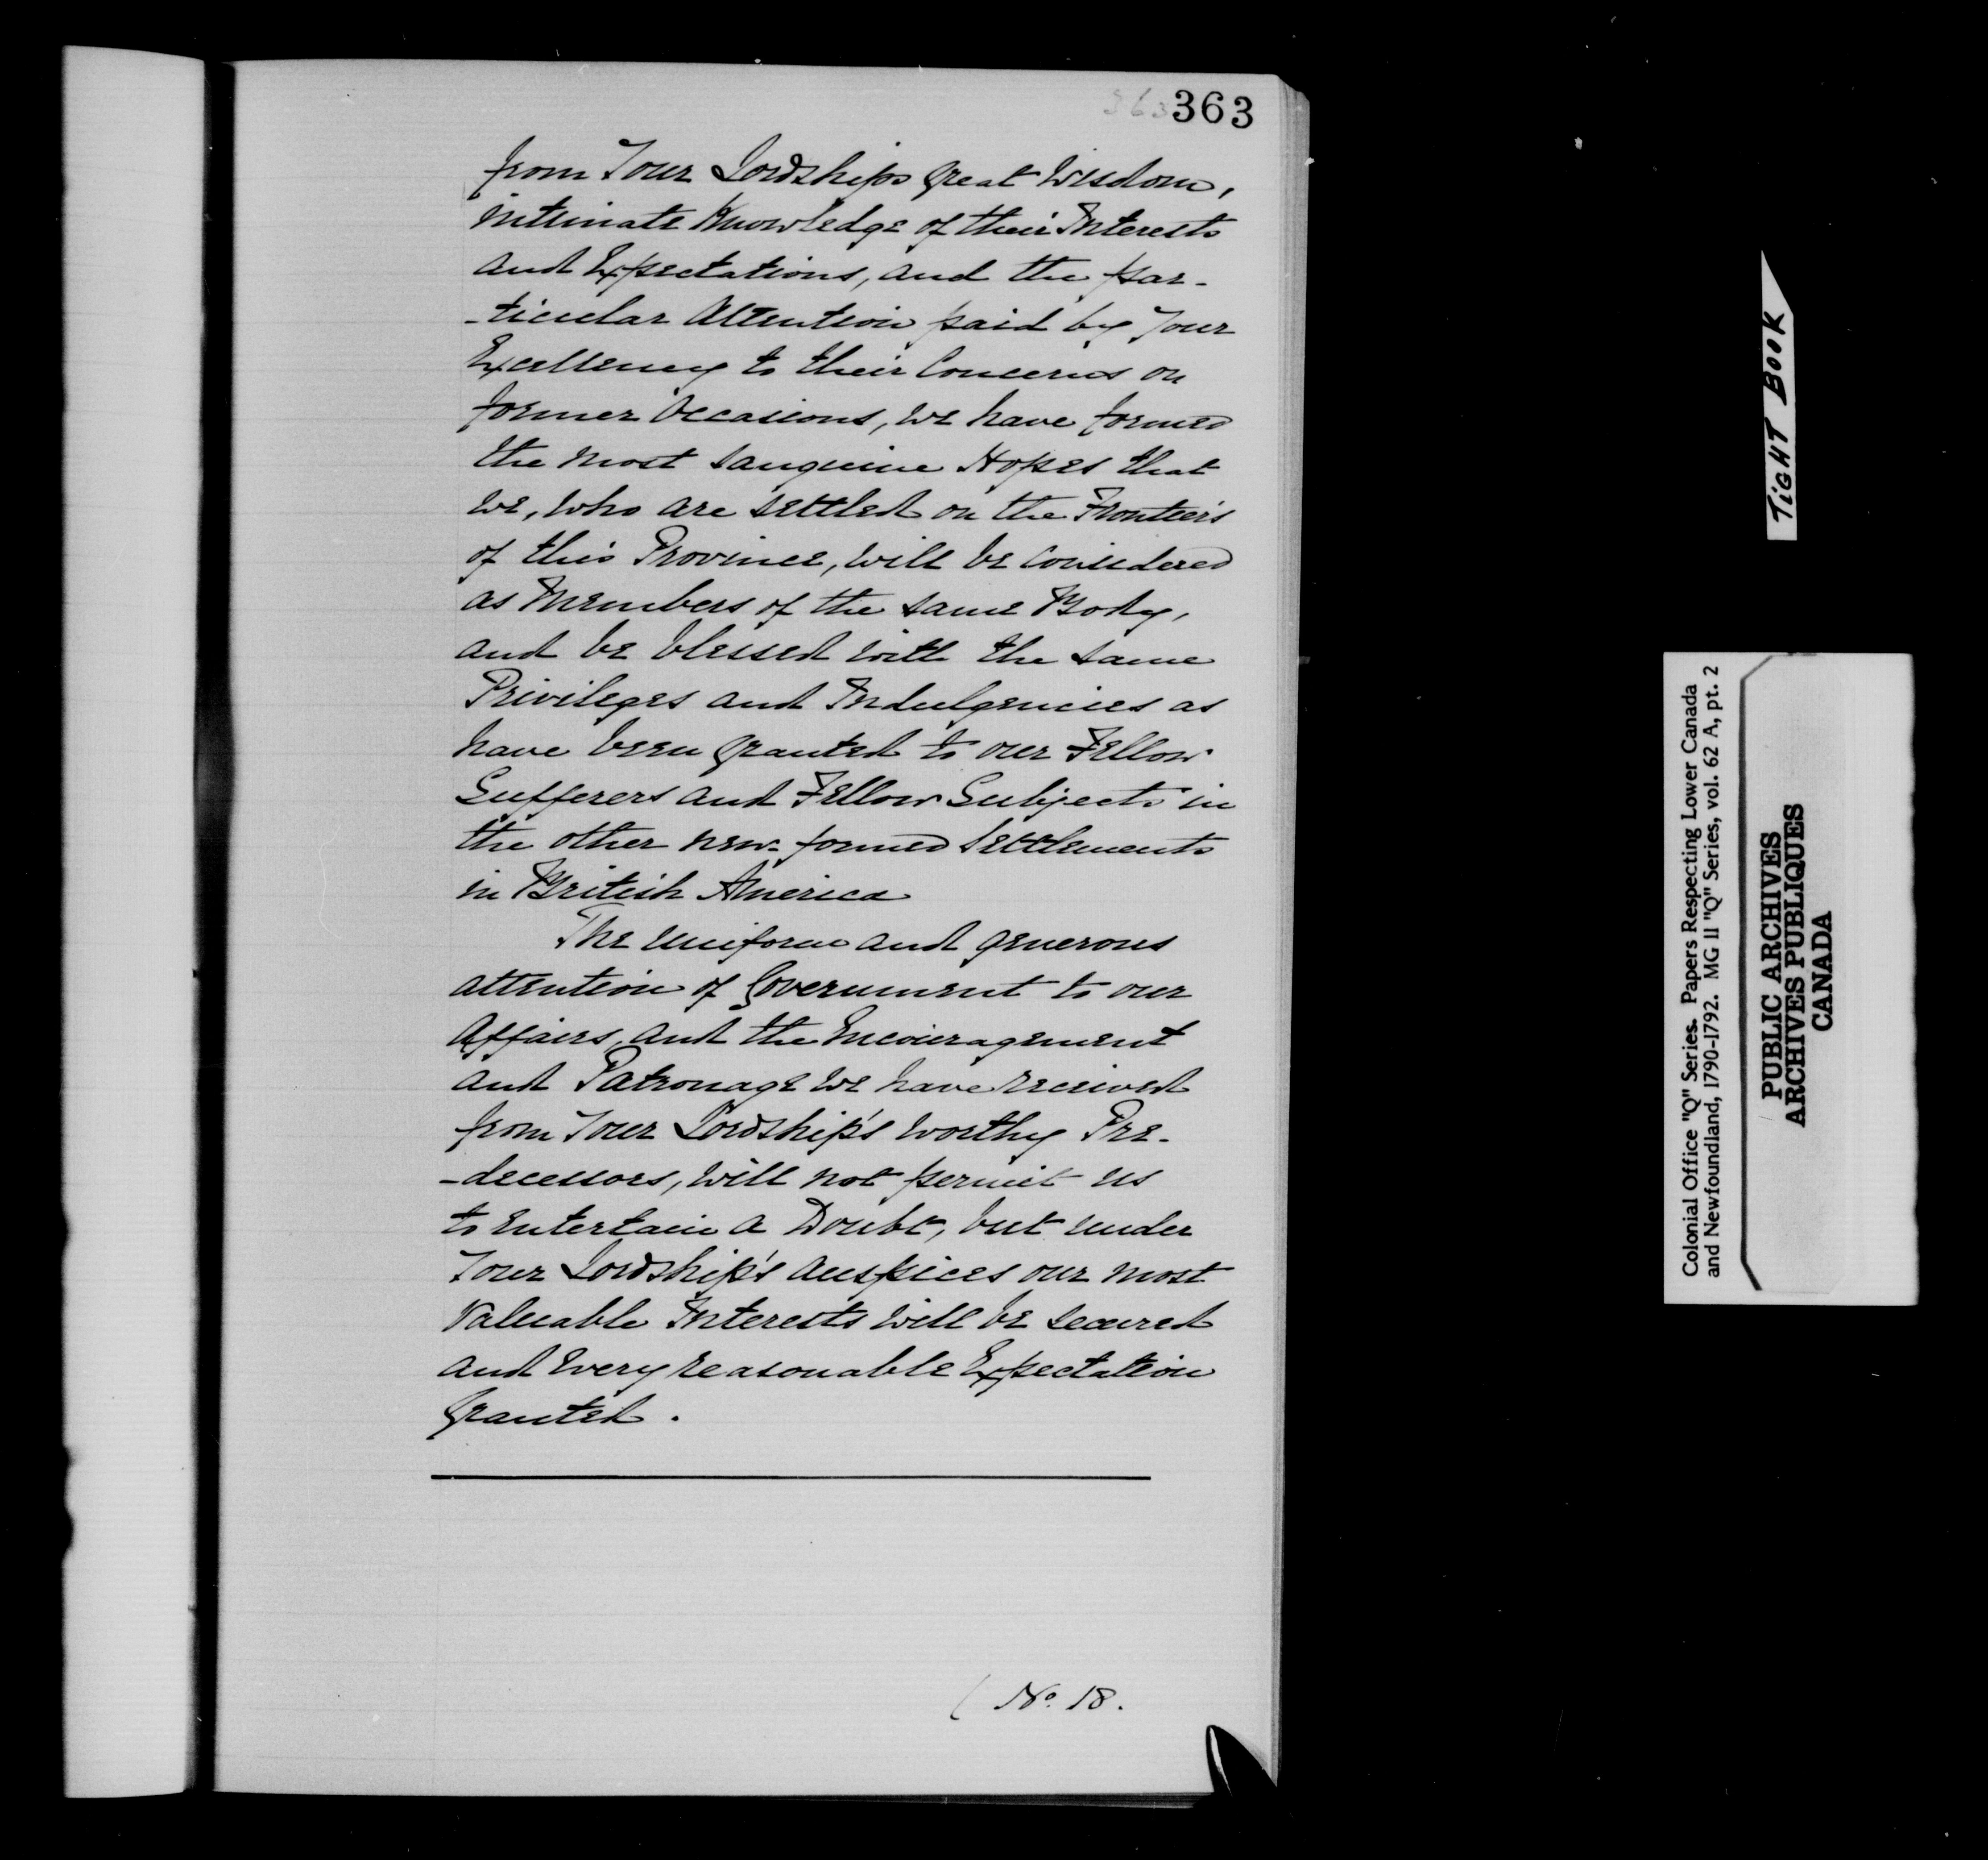 363 363
from Your Lordships Great Wisdom,
intimate Knowledge of their Interests
and Expectations, and the par-
-ticular Attention paid by Your
Excellency to their Concerns on
former Occasions, we have formed
the most sanguine Hopes that
we, who are settled on the Frontiers
of this Province, will be considered
as Members of the same Body,
and be blessed with the same
Privileges and Indulgencies as
have been granted to our Fellow
Sufferers and Fellow Subjects in
the other new-formed Settlements
in British America
The uniform and generous
attention of Government to our
Affairs, and the Encouragement
and Patronage we have received
from Your Lordship's worthy Pre-
-decessors, will not permit us
to entertain a Doubt, but under
Your Lordship's auspices our most
Valuable Interests will be secured
and every reasonable Expectation
Granted.
( No. 18.
TIGHT BOOK
Colonial Office "Q" Series. Papers Respecting Lower Canada
and Newfoundland, 1790-1792. MG 11 "Q" Series, vol. 62 A, pt. 2
PUBLIC ARCHIVES
ARCHIVES PUBLIQUES
CANADA